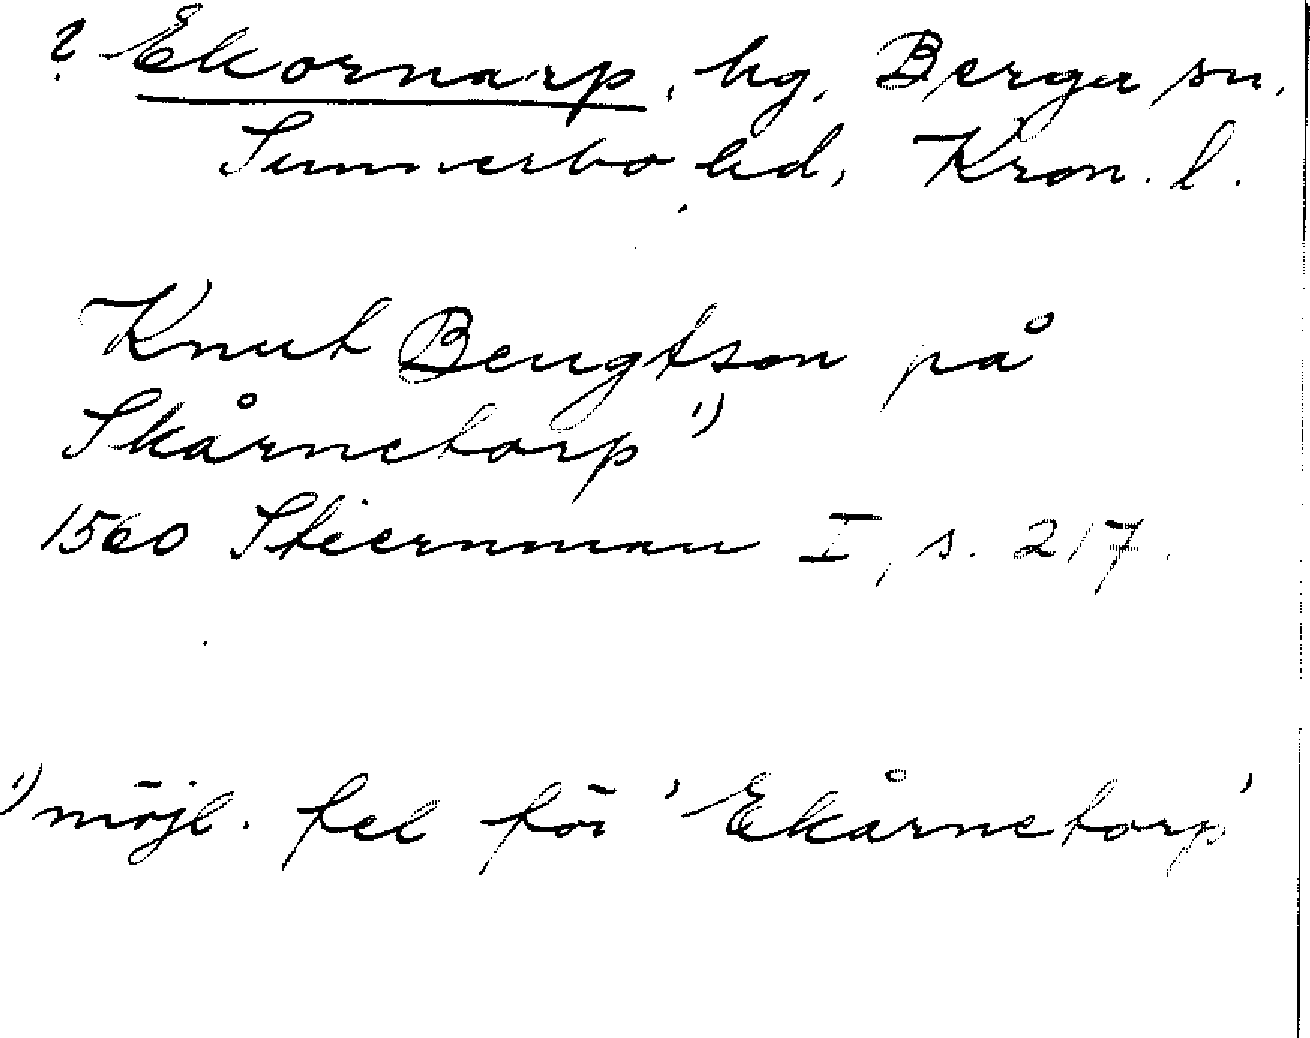 ? Ekornarp, hg, Berga sn.
Sunnerbo hd, Kron. l.
Knut Bengtson på
Skårnetorp 1)
1560 Stiernman I, s. 217.
1) möjl. fel för 'Ekårnetorp'